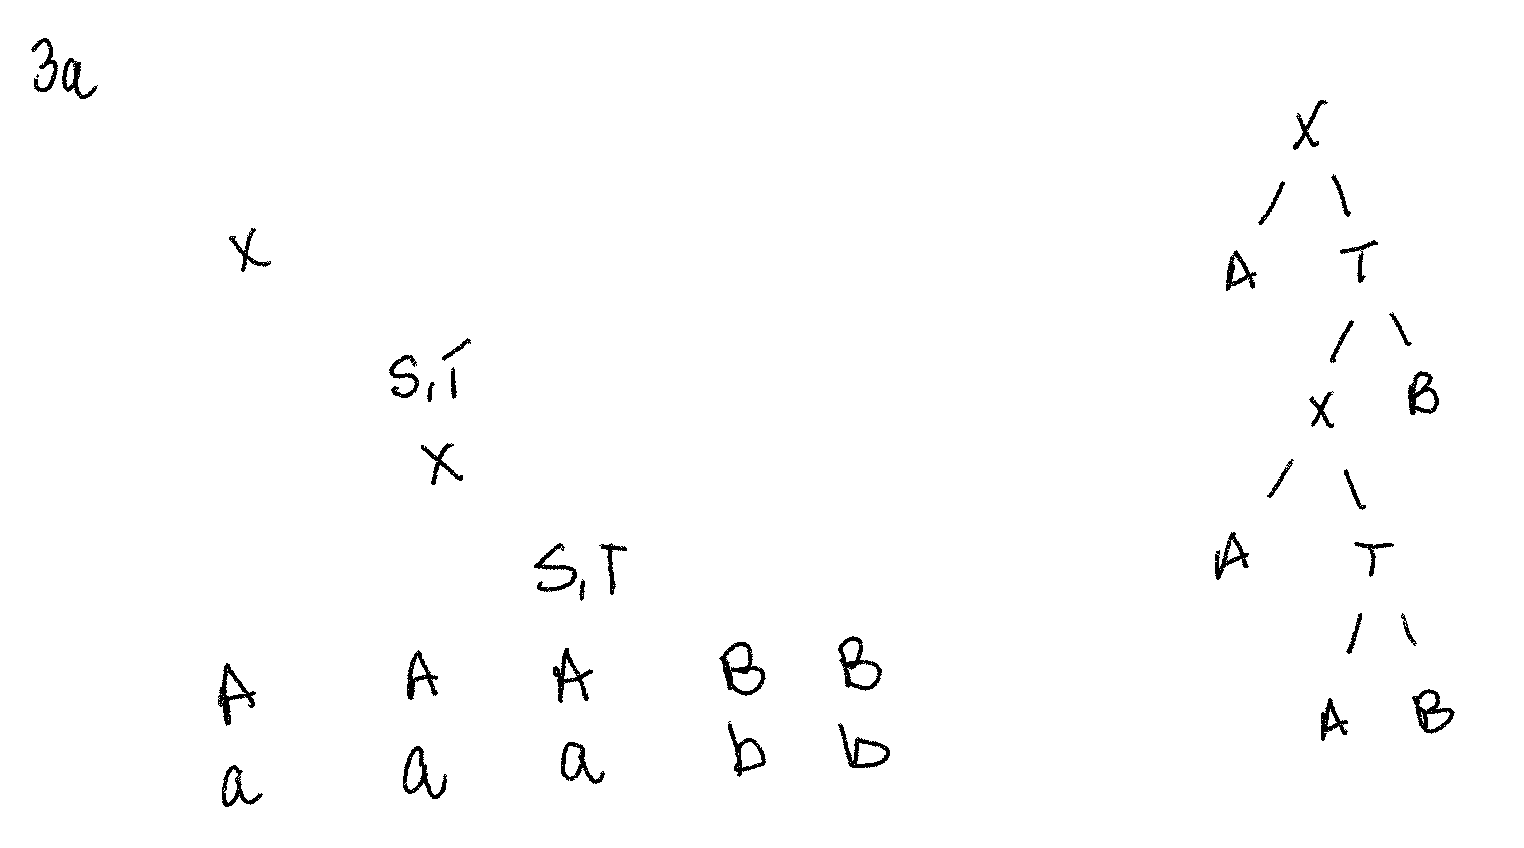 3a
X
S,T
X
S,T
A A A B B
a a a b b
X
A T
X B
A T
A B